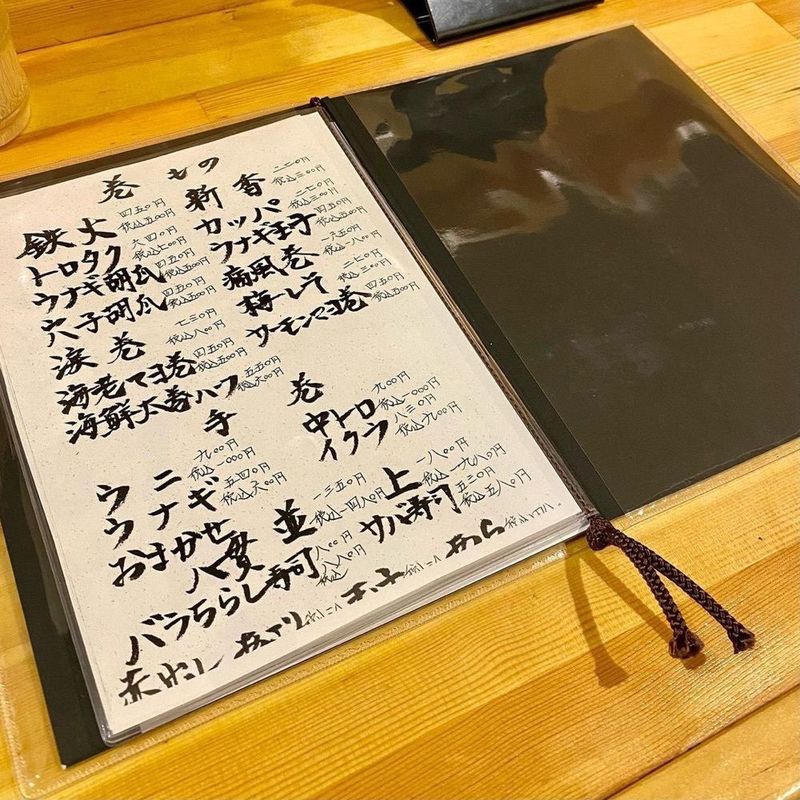 巻もの
鉄火 四五〇円 税込五〇〇円
新香 二七〇円 税込三〇〇円
トロタク 六四〇円 税込七〇〇円
カッパ 二七〇円 税込三〇〇円
ウナギ胡瓜 四五〇円 税込五〇〇円
ウナギ玉子 四五〇円 税込五〇〇円
穴子胡瓜 四五〇円 税込五〇〇円
痛風巻 一六五〇円 税込一八〇〇円
涙巻 二七〇円 税込三〇〇円
海老マヨ巻 七三〇円 税込八〇〇円
サーモンマヨ巻 四五〇円 税込五〇〇円
海鮮太巻ハーフ 五五〇円 税込六〇〇円
手巻
ウニ 九〇〇円 税込一〇〇〇円
中トロ 九〇〇円 税込一〇〇〇円
ウナギ 五四〇円 税込六〇〇円
イクラ 八三〇円 税込九〇〇円
おまかせ八貫 並 一三五〇円 税込一四八〇円
上 一八〇〇円 税込一九八〇円
バラちらし寿司 八〇〇円 税込八八〇円
サバ寿司 五三〇円 税込五八〇円
赤出し あさり 玉子 あら